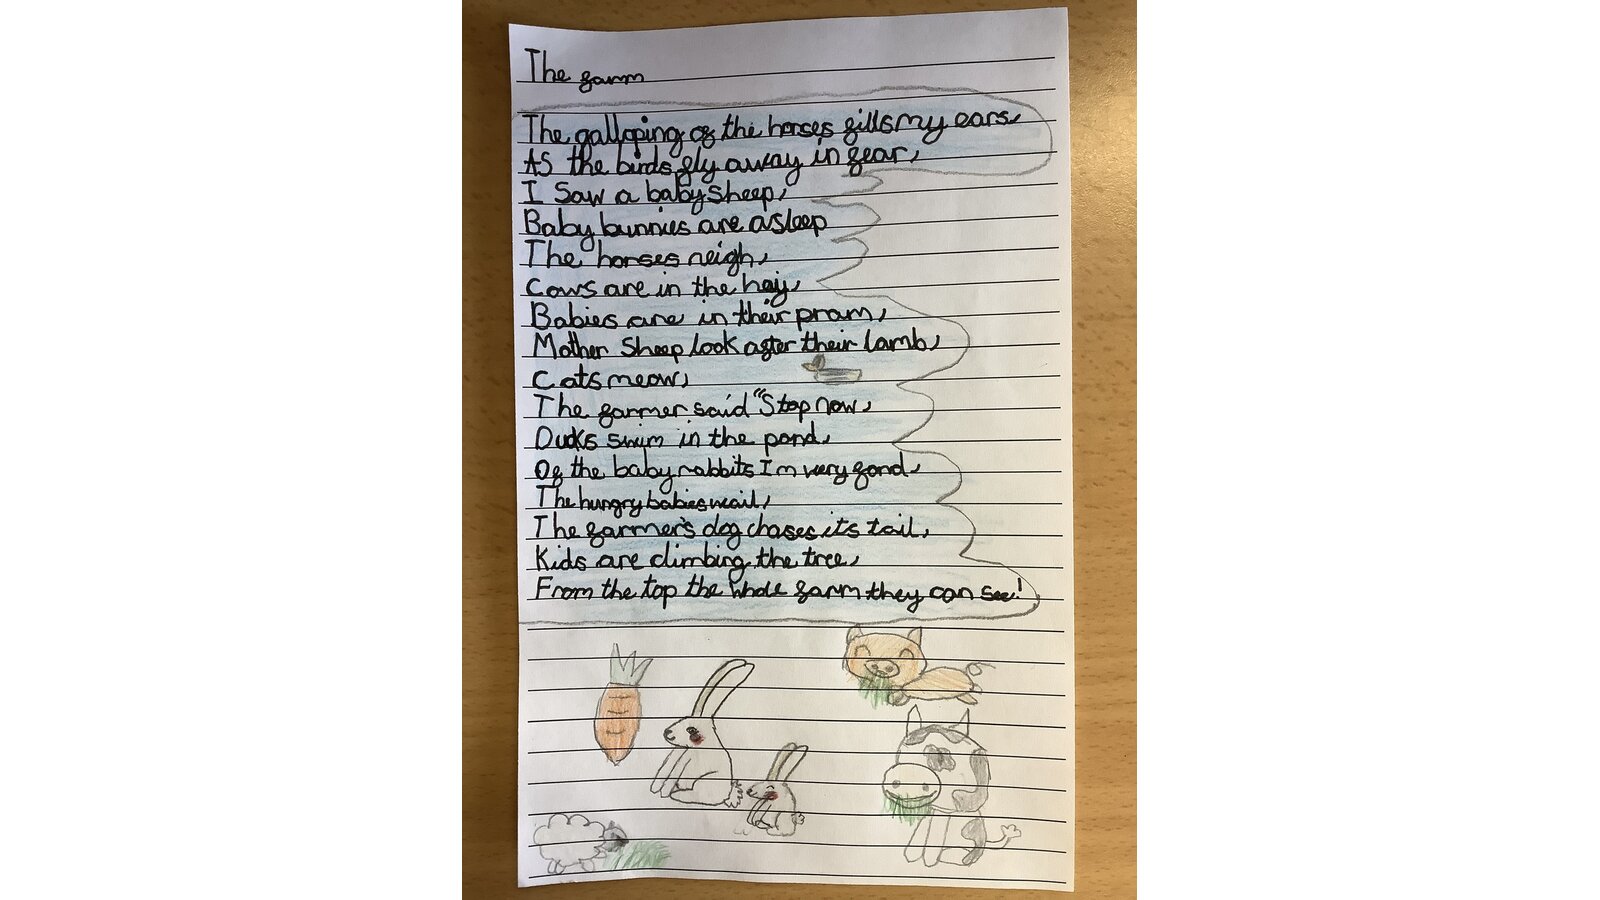 The farm
The galloping of the horses fills my ears,
As the birds fly away in fear,
I saw a baby sheep,
Baby bunnies are asleep
The horses neigh,
Cows are in the hay,
Babies are in their pram,
Mother Sheep look after their lamb,
Cats meow,
The farmer said "Stop now,
Ducks swim in the pond,
Of the baby rabbits I'm very fond,
The hungry babies wail,
The farmer's dog chases its tail,
Kids are climbing the tree,
From the top the whole farm they can see!